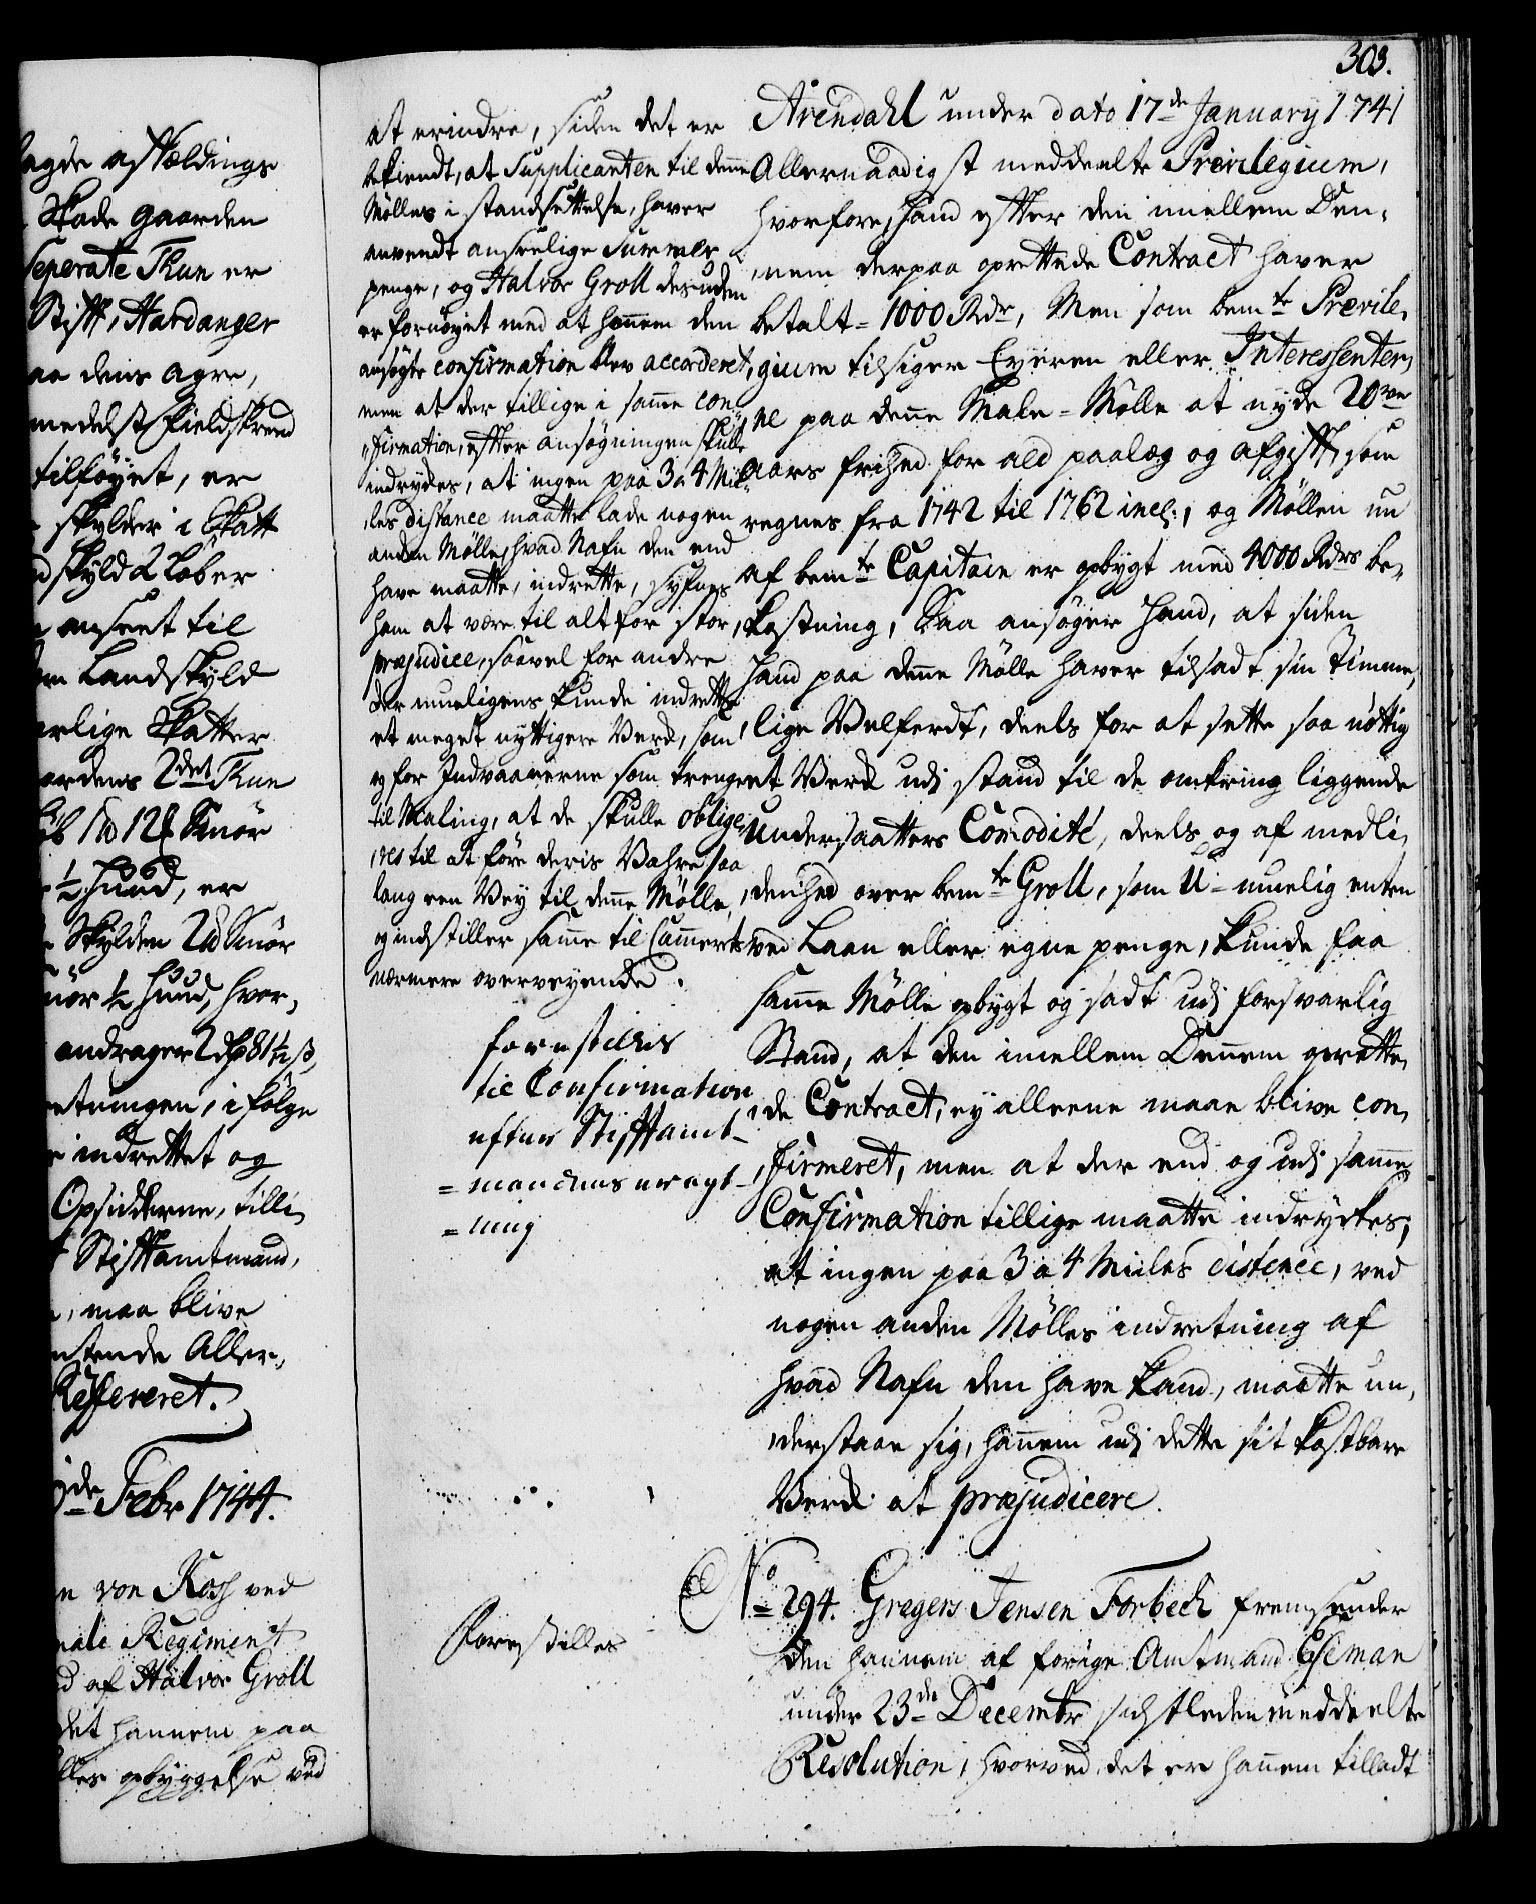 303.
agde aftældings
Skade gaarden
Seperate Thun er
Stift, Hardanger
aa dens agre,
medelst Fieldskreed
tilføyet, er
skylder i Skatt
d skyld 2 Løber
anseet til
Landskyld
arlige Skatter
ordens 2det Thun
12 Smör
½ huud, er
Skylden 2 Smör
mör ½ huud, hvor,
andrager 2
etningen, i følge
indrettet og
Opsidderne, tilli,
Stiftamtmand,
, maa blive
stende Aller,
Refereret.
de Febr 1744.
von Kosh ved
nale Regiment
d af Halvor Groll
det hannem paa
lles opbyggelse ved
at erindre, siden det er
bekiendt, at Supplicanten til denne
Mölles i standsættelse, haver
anvendt anseelige Summer
penge, og Halvor Groll desuden
er fornöyet med at hannem den
ansögte confirmation blev accorderet,
men at der tillige i samme con
firmation, efter ansögningen skulle
indrykes, at ingen paa 3 a 4 Mi
les distance maatte lade nogen
anden Mölle, hvad Nafn den end
have maatte, indrette, syfnes
ham at være til alt for stor
præjudice, saavel for andre
der mueligens kunde indrette
et meget nyttigere Verk, som
og for Indvaanerne som trenger
til Maling, at de skulle oblige
res til at före deris Vahre saa
lang een Vey til denne Mölle,
og indstiller samme til Cammerets
nærmere overveyende.
forestilles
til Confirmation
efter Stiftamt-
= mandens eragt-
= ning
Arendahl under dato 17de January 1741
Allernaadigst meddeelte Previlegium,
hvorfore hand efter den imellem Den,
nem derpaa oprettede Contract haver
betalt = 1000 Rdr, Men som bemte Previle,
gium tilsiger Eyeren eller Interessenter,
ne paa denne Male = Mölle at nyde 20ve
aars frihed for ald paalæg og afgift, som
regnes fra 1742 til 1762 incl:, og Möllen nu
af bemte Capitain er opbygt med 4000 Rdrs be,
kostning, Saa ansöger hand, at siden
hand paa denne Mölle haver tilsadt sin Timme,
lige Velferdt, deels for at sette saa nöttig
et Verk udj stand til de omkring liggende
Undersaatters Comodité, deels og af medli,
denhed over bemte Groll, som U = muelig enten
ved Laan eller egne penge, kunde faa
samme Mölle opbygt og sadt udj forsvarlig
Stand, at den imellem Dennem oprette,
de Contract, ey alleene maae blive con,
firmeret, men at der end og udj samme
Confirmation tillige maatte indryckes,
at ingen paa 3 a 4 Miiles distence, ved
nogen anden Mölles indretning af
hvad Nafn den have kand, maatte un,
derstaae sig, hannem udj dette sit kostbare
Verk at præjudicere.
No 294. Gregers Jensen Forbech fremsender
Forestilles
den hannem af forige Amtmand Eseman
under 23de Decembr sidstleden meddeelte
Resolution, hvorved det er hannem tilladt